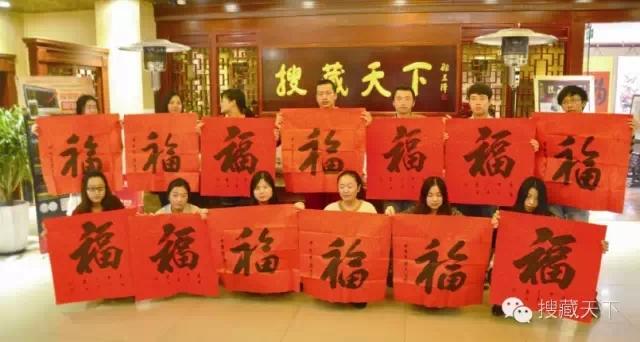 搜藏天下
福 福 福 福 福 福 福
福 福 福 福 福 福
搜藏天下